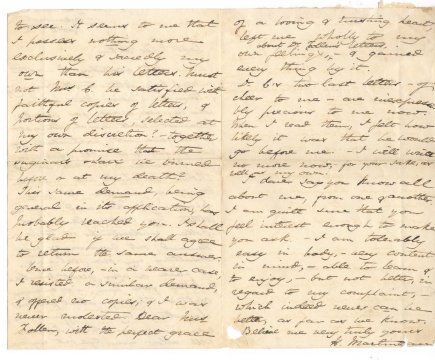 to see. It seems to me that
I possess nothing more
exclusively & sacredly my
own than her letters. Must
not Mrs C. be satisfied with
faithful copies of letters, &
portions of letters, selected at
my own discretion? - together
with a promise that the
originals shall be burned
before or at my death?
This same demand, being
general in its application, has
probably reached you. I shall
be glad if we shall agree
to return the same answer.
Once before, - in a nearer case,
I resisted a similar demand,
& offered no copies; & I was
never molested. Dear Mrs
Follen, with the perfect grace
of a loving & trusting heart
left me wholly to my
about Dr Follen's letters,
own feelings, & gained
every thing by it.
Dr C's two last letters - of
cheer to me - are inexpressi-
bly precious to me now.
When I read them, I felt how
likely it was that he would
go before me. I will write
no more now, for your sake, as
well as my own.
I dare say you know all
about me, from one & another.
I am quite sure that you
feel interest enough to make
you ask. I am tolerably
easy in body, - very content
in mind, - able to learn &
to enjoy, - but not better, in
regard to my complaint, -
which indeed never can be
better, as far as we know.
Believe me very truly yours
H. Martineau